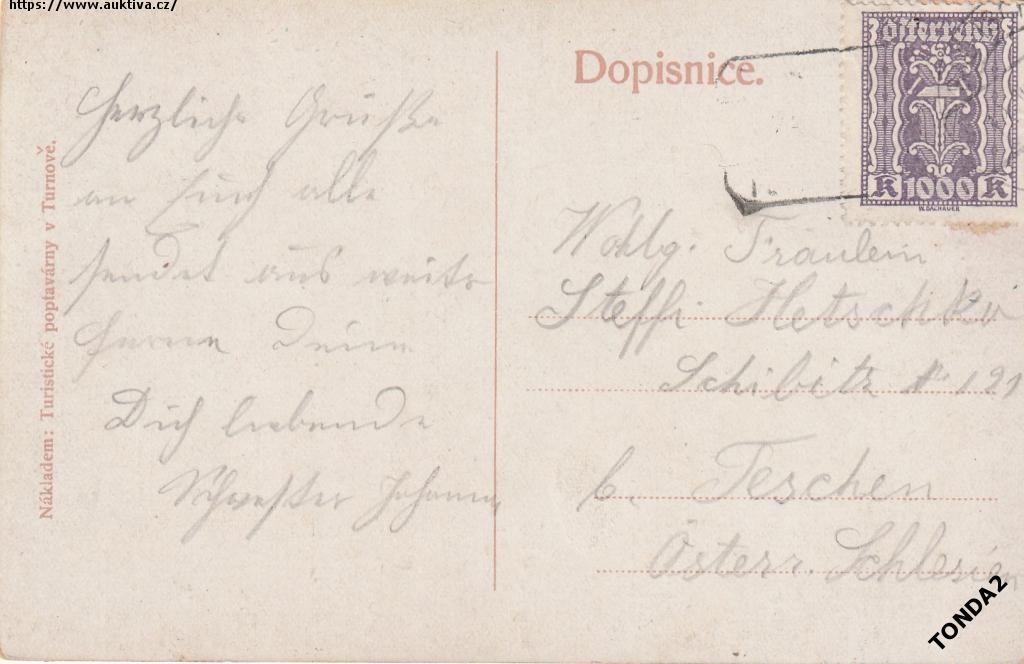 https://www.auktiva.cz/
Dopisnice.
Österreich
K 1000 K
W. DACHAUER
Nákladem: Turistické poptavárny v Turnově.
Herzliche Grüße
an Euch alle
sendet aus weiter
Ferne Deine
Dich liebende
Schwester Johanna
Wohlg. Fräulein
Steffi
Schibitz № 121
b. Teschen
Österr. Schlesien
TONDA2